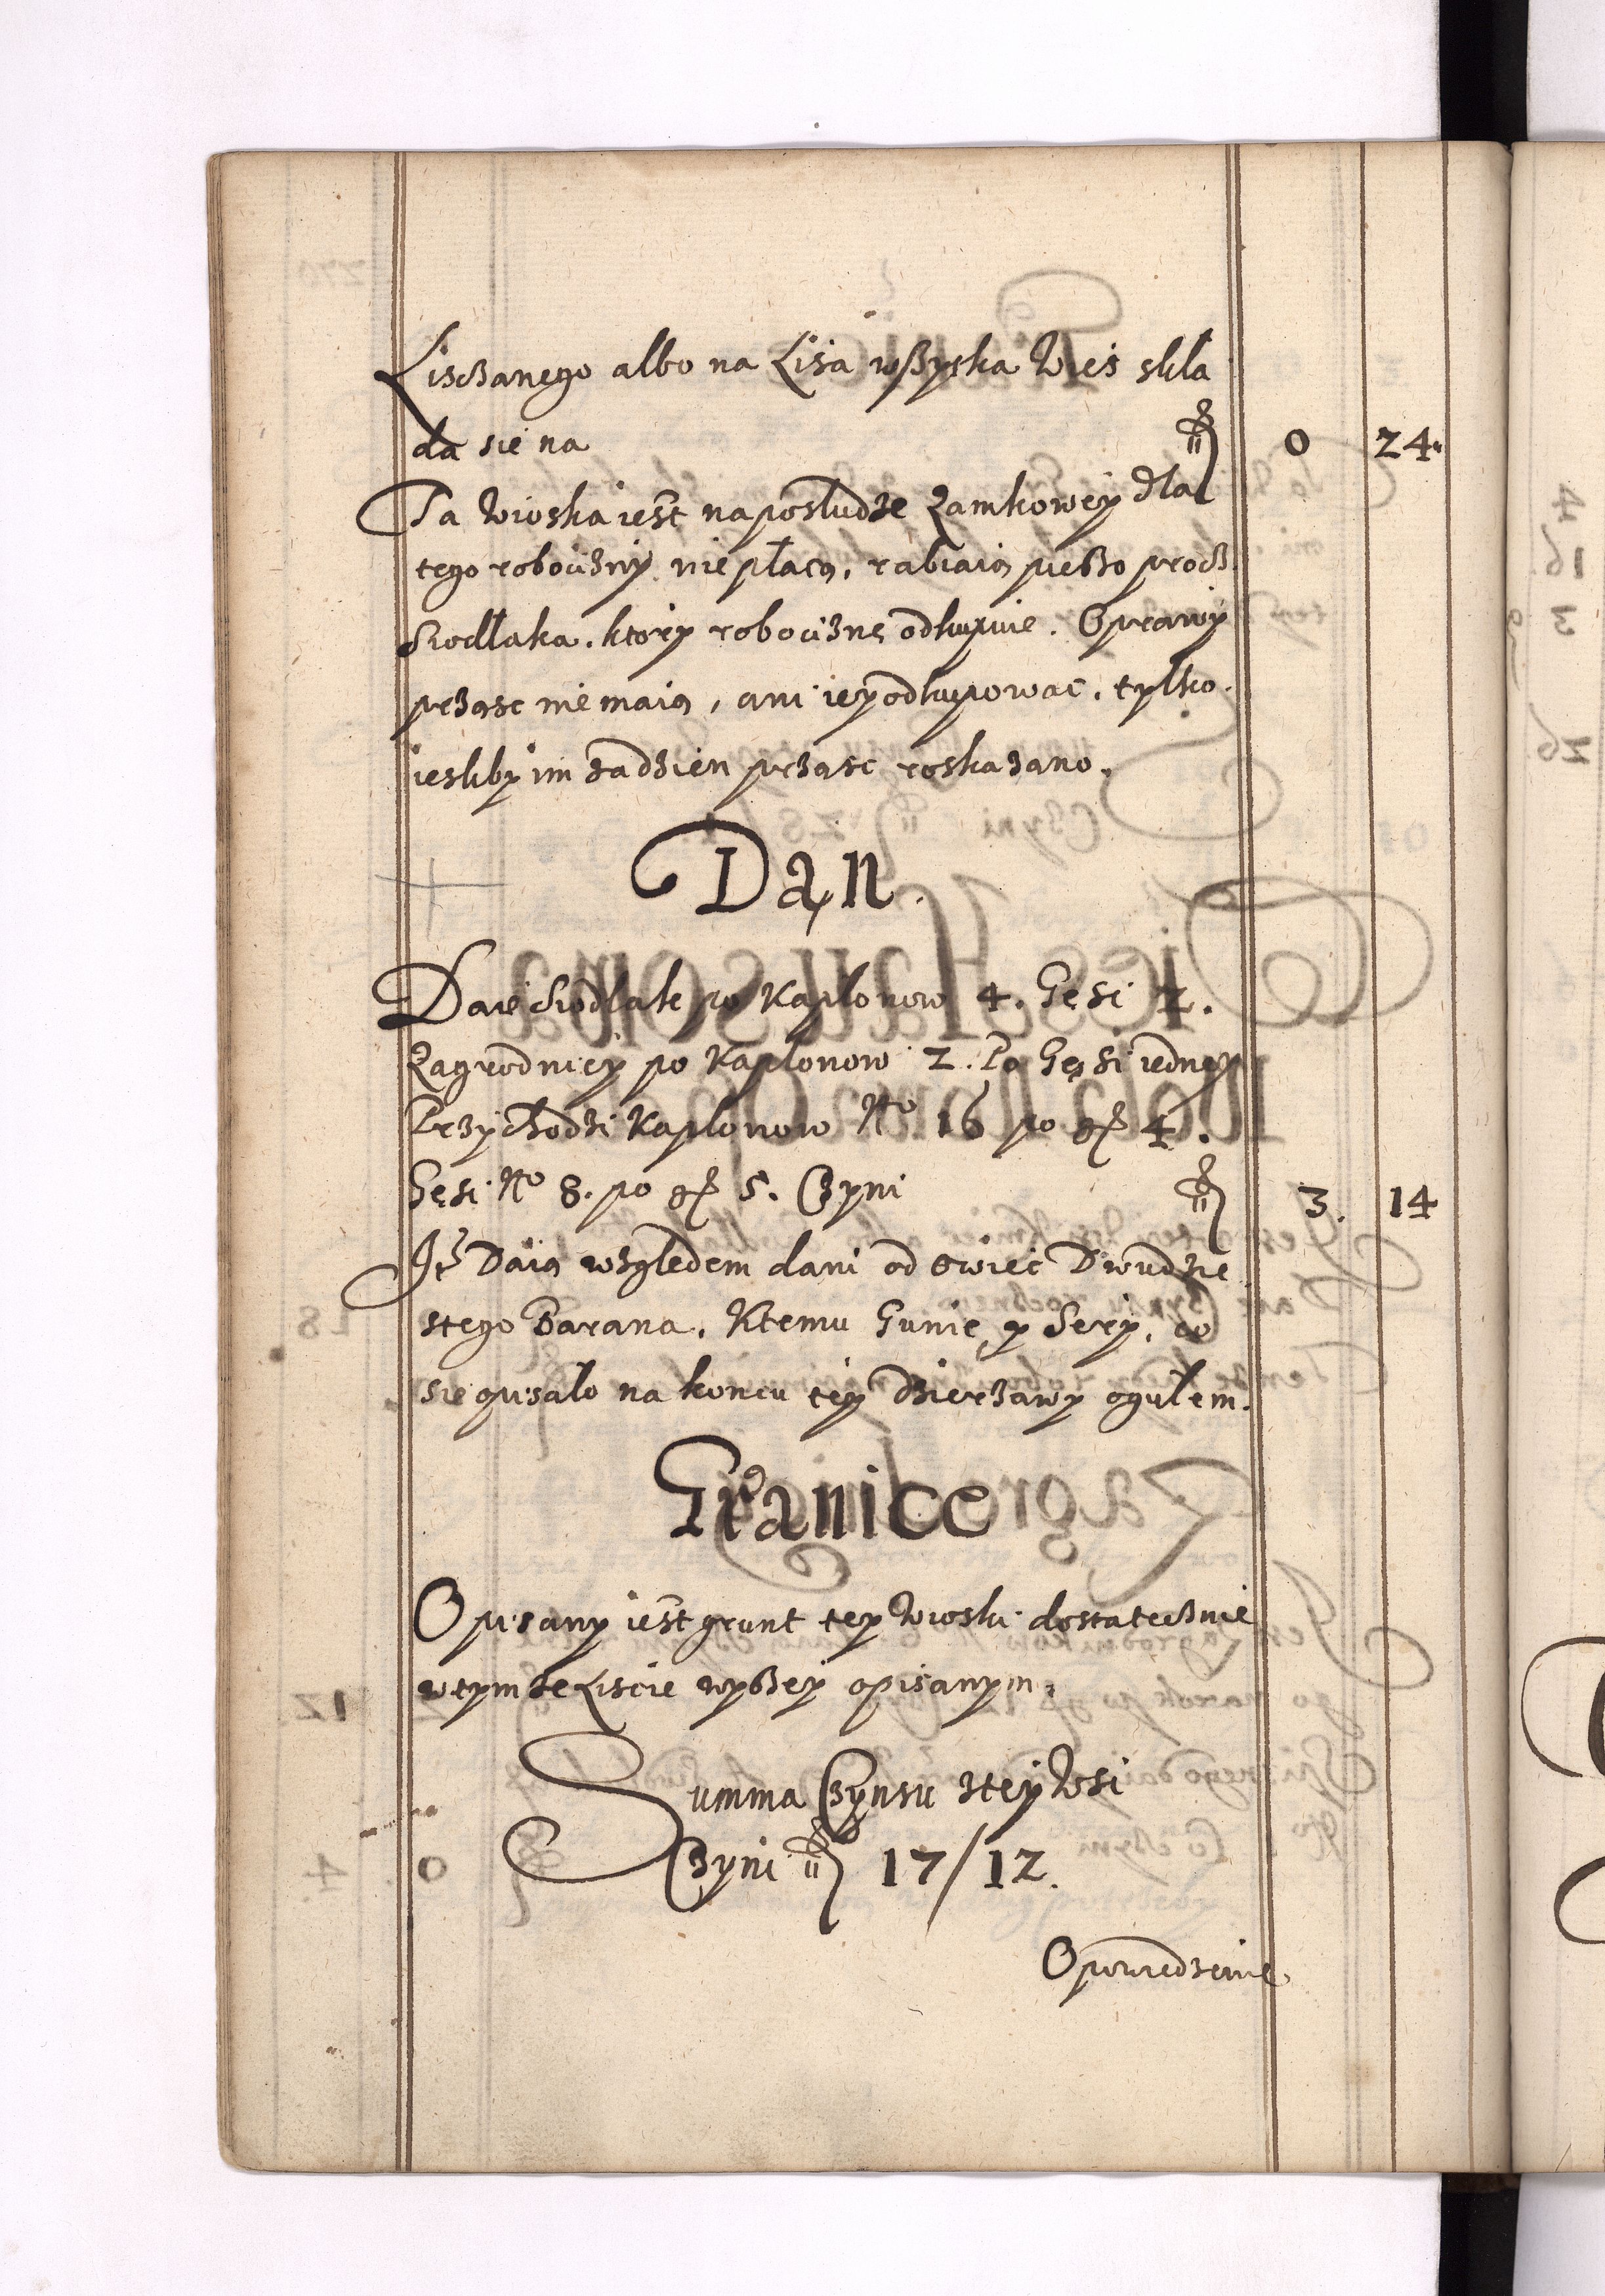 Lisczanego albo na Lisa wszytka Wieś skła
da sie na fl 0 24.
Ta Wioska iest na posłudze Zamkowey dla
tego robocizny nie płacą, rabiaią pieszo procz
Siodłaka, ktory robociznę odkupuie. Oprawy
prząsc nie maią, ani iey odkupowac, tylko
iesliby im zadzien prząsc roskazano.
Dań.
Daie Siodlak po Kapłonow 4. Gęsi 2.
Zagrodnicy po Kapłonow 2. Po Gęsi iedney
Przychodzi Kapłonow No 16 po gr 4.
Gęsi No 8. po gr 5. Czyni fl 3. 14
It. Daią względem dani od owiec Dwudzie
stego Barana. Ktemu Gunie y Sery, co
sie pisało na koncu tey dzierzawy ogułem.
Granice
Opisany iest grunt tey Wioski dostatecznie
w tymze Liscie wyszey opisanym.
Summa Czynszu z tey Wsi
Czyni fl 17/12.
Opowiedzenie